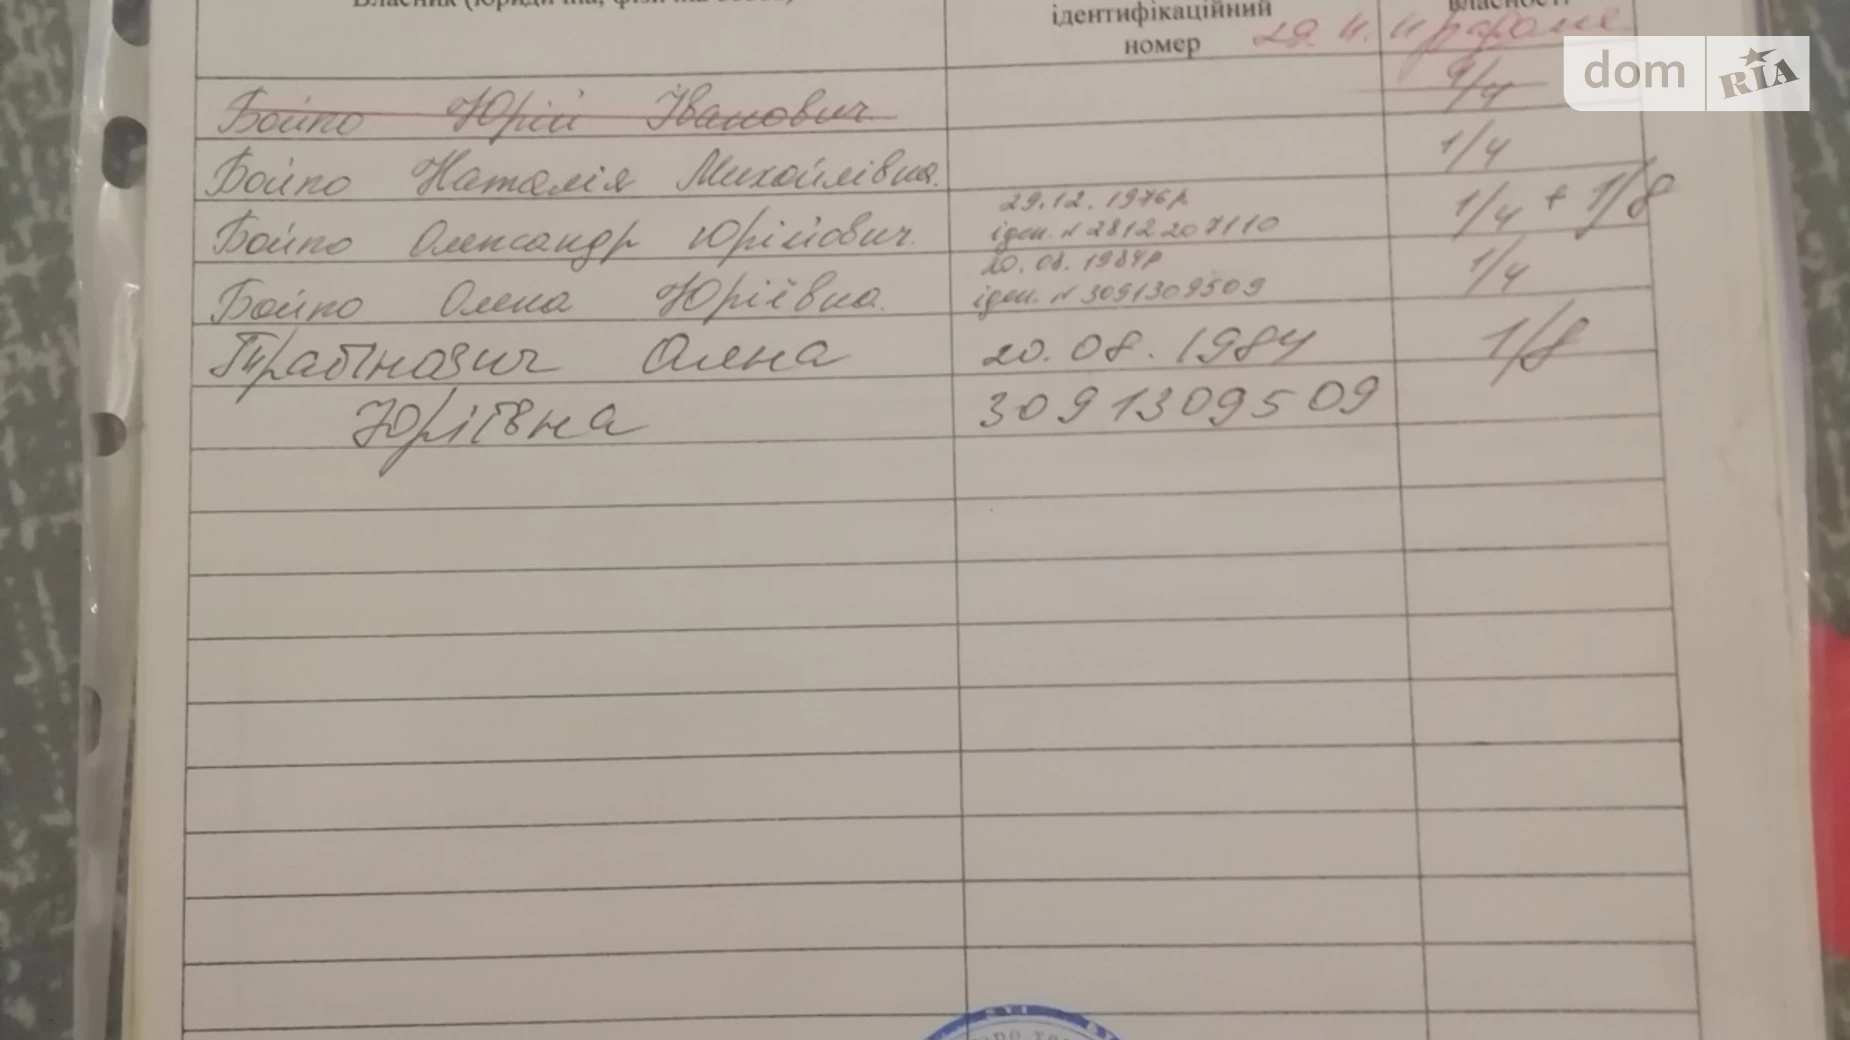 Власник (юридична, фізична особа)
ідентифікаційний
власності
номер
29.
dom RIA
Бойко Юрій Іванович
Бойко Наталія Михайлівна. 1/4
29.12.1976р
Бойко Олександр Юрійович. іден. № 2812207110 1/4 + 1/8
20.08.1984р
Бойко Олена Юріївна. іден. № 3091309509 1/4
Олена 20.08.1984 1/8
Юріївна 3091309509